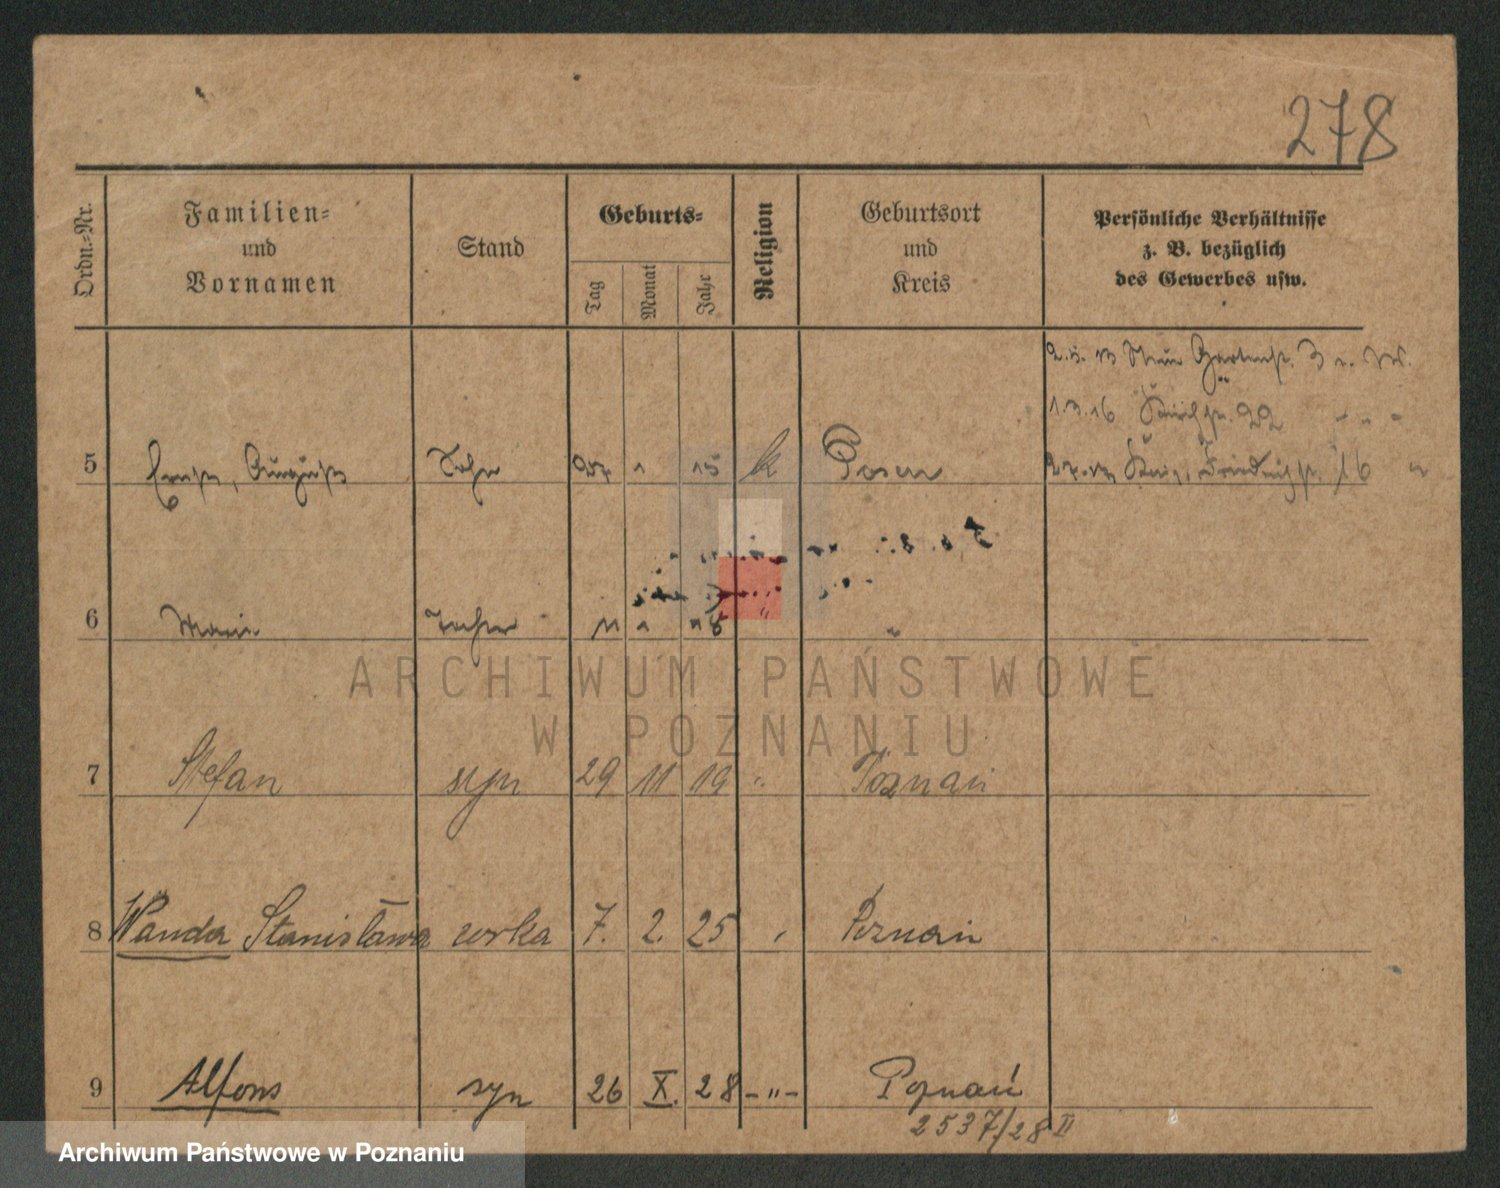 278
Ordn.-Nr.
Familien-
und
Vornamen
Stand
Geburts-
Tag
Monat
Jahr
Religion
Geburtsort
und
Kreis
Persönliche Verhältnisse
z. B. bezüglich
des Gewerbes usw.
Gartenstr. 3
1.3.16 22
5 Ernst, Auguste Sohn 1 15 k Posen 16
6 Maria Tochter 11 1 18 " "
7 Stefan syn 29 11 19 " Poznań
8 Wanda Stanisława córka 7. 2. 25 Poznań
9 Alfons syn 26 X. 28 -"- Poznań
2537/28 II
ARCHIWUM PAŃSTWOWE
W POZNANIU
Archiwum Państwowe w Poznaniu